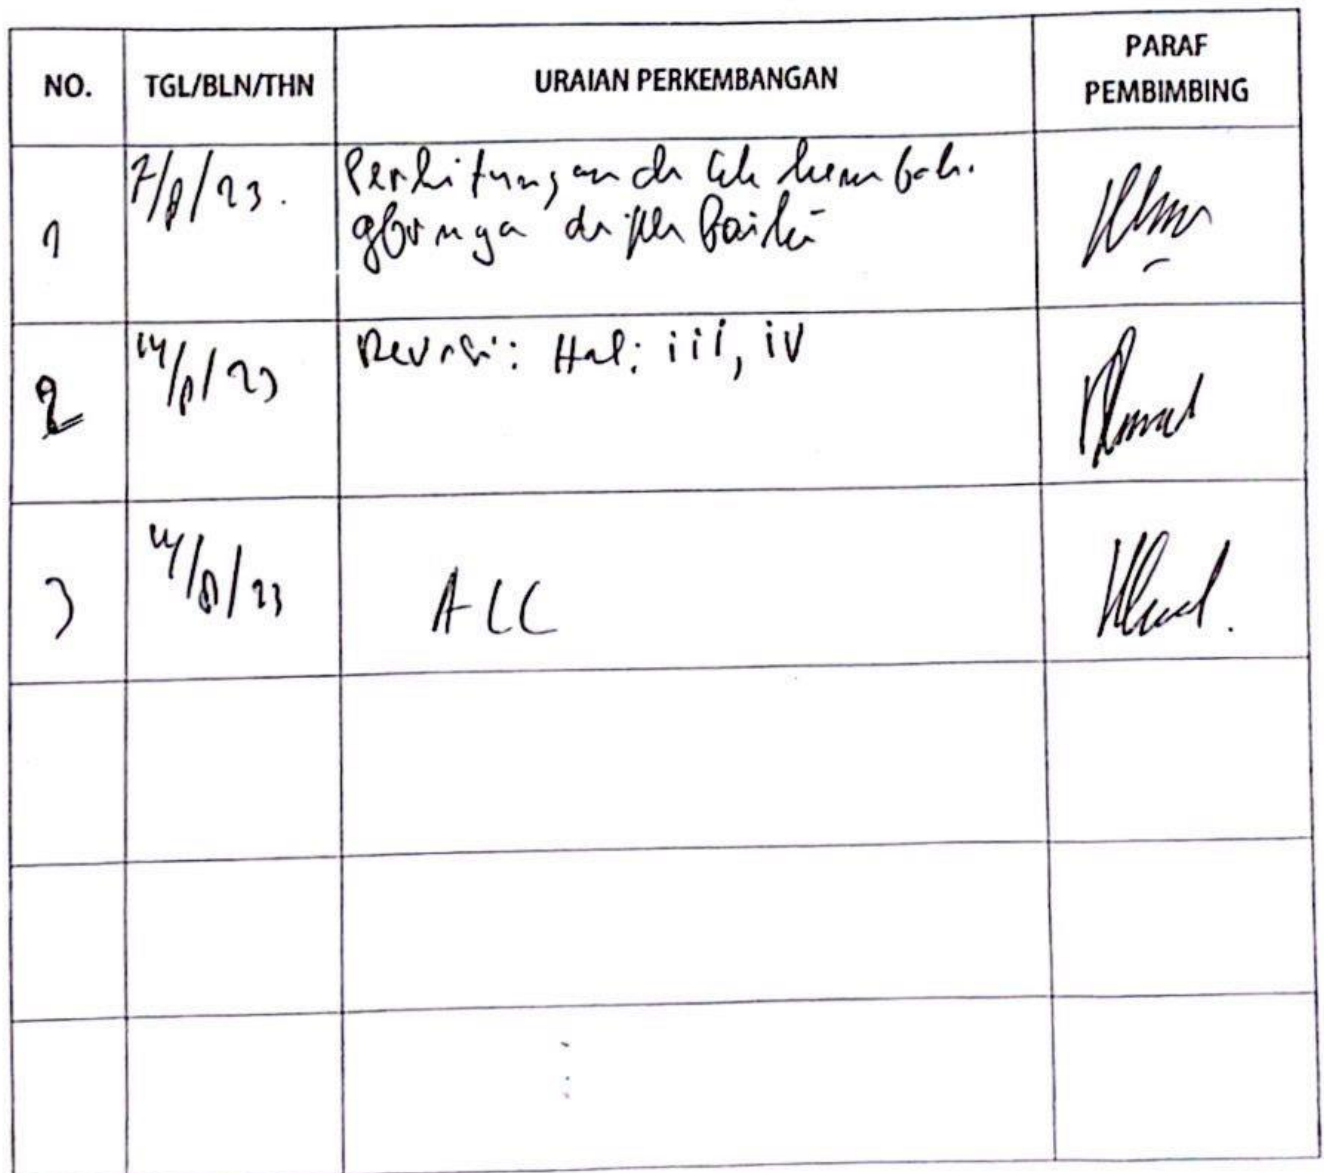 NO. TGL/BLN/THN URAIAN PERKEMBANGAN PARAF PEMBIMBING
1 7/8/23. Perhitungan di cek kembali.
gbrnya diperbaiki
2 14/8/23 Revisi: Hal: iii, iv
3 14/8/23 ACC